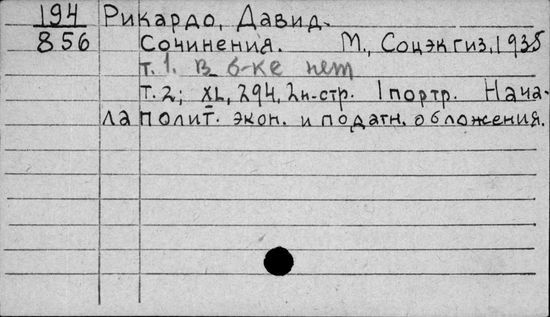 194 Рикардо, Давид.
856 Сочинения. М., Соцэкгиз, 1935
т. 1. в б-ке нет
т. 2; XL, 294, 2н-стр. 1 портр. Нача-
ла полит. экон. и податн. обложения.